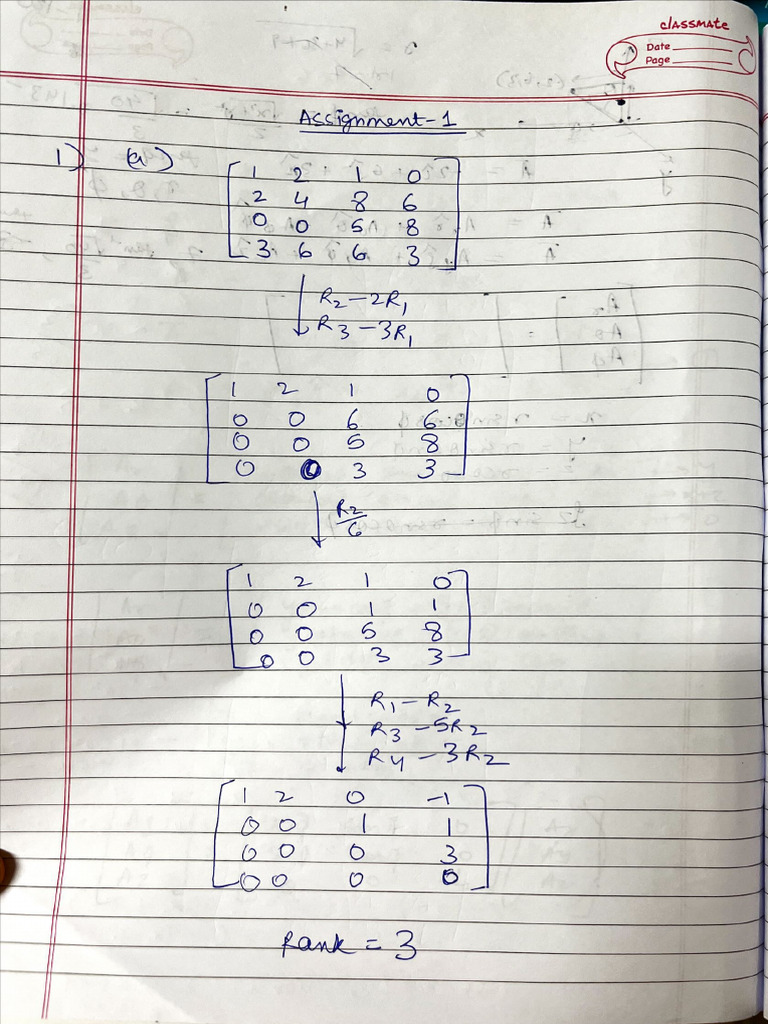 classmate
Date
Page
Assignment-1
1) (a)
1 2 1 0
2 4 8 6
0 0 5 8
3 6 6 3
R2-2R1
R3-3R1
1 2 1 0
0 0 6 6
0 0 5 8
0 0 3 3
R2/6
1 2 1 0
0 0 1 1
0 0 5 8
0 0 3 3
R1-R2
R3-5R2
R4-3R2
1 2 0 -1
0 0 1 1
0 0 0 3
0 0 0 0
Rank = 3